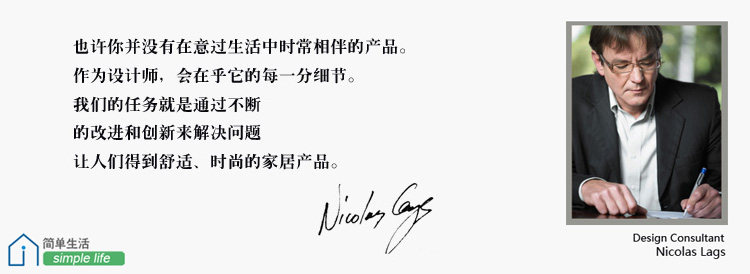 也许你并没有在意过生活中时常相伴的产品。
作为设计师，会在乎它的每一分细节。
我们的任务就是通过不断
的改进和创新来解决问题
让人们得到舒适、时尚的家居产品。
Nicolas Lags
Design Consultant
Nicolas Lags
简单生活
simple life